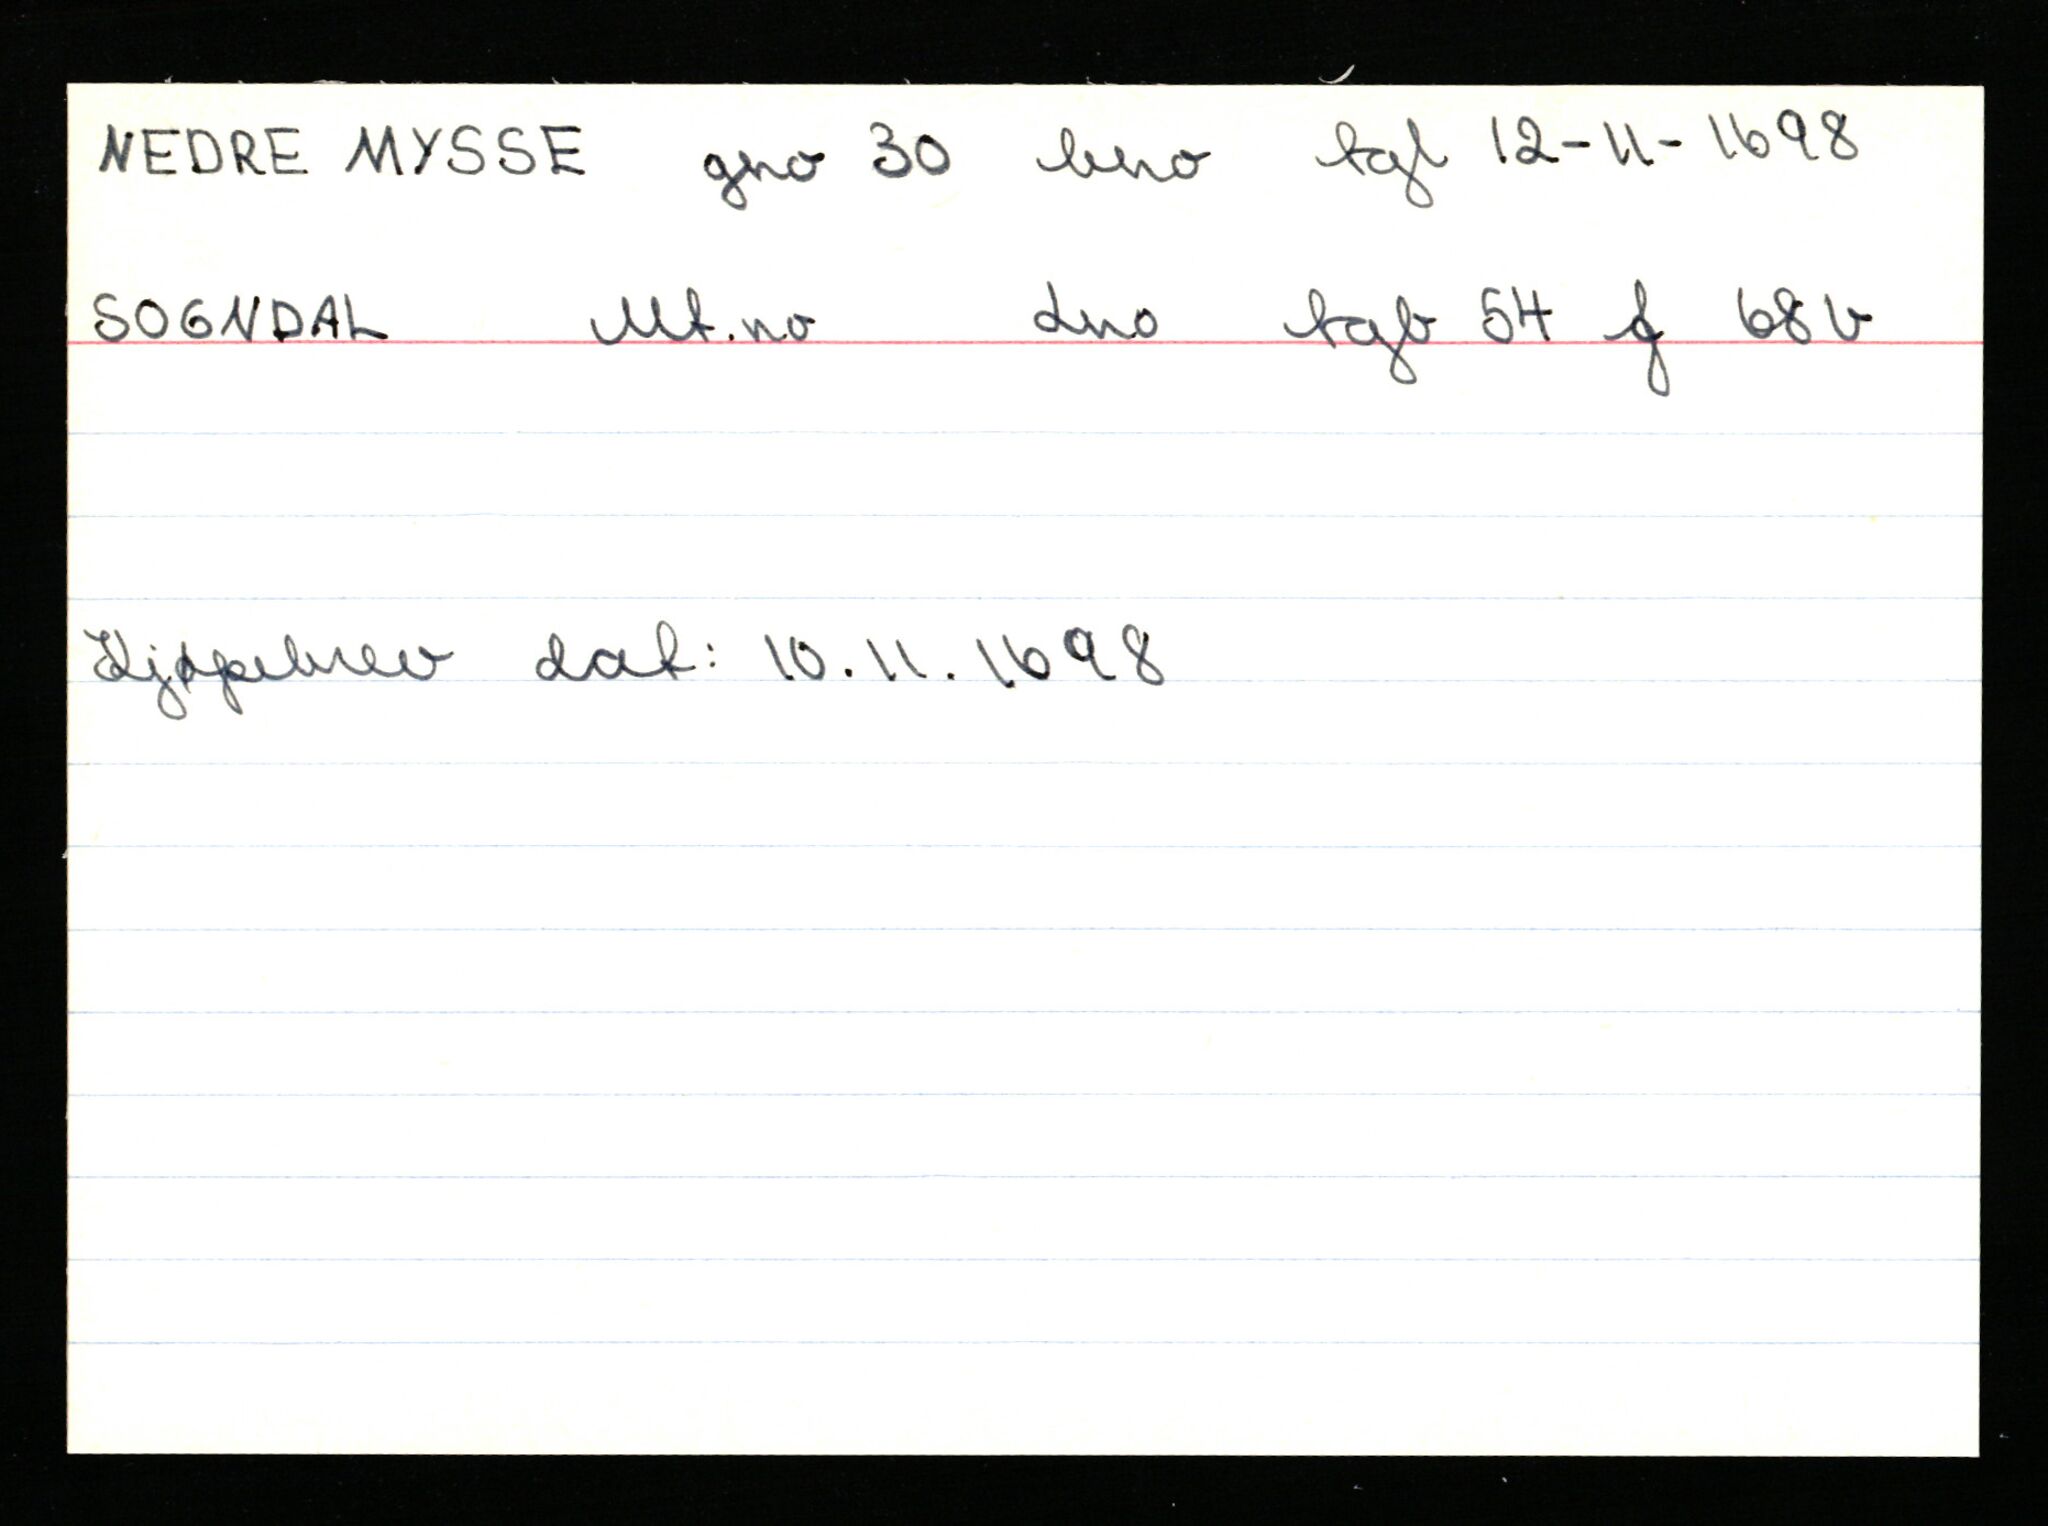 NEDRE MYSSE gno 30 bno tgl 12-11-1698
SOGNDAL Mt.no dno tgb 54 f 68b
Kjøpebrev dat: 10.11.1698